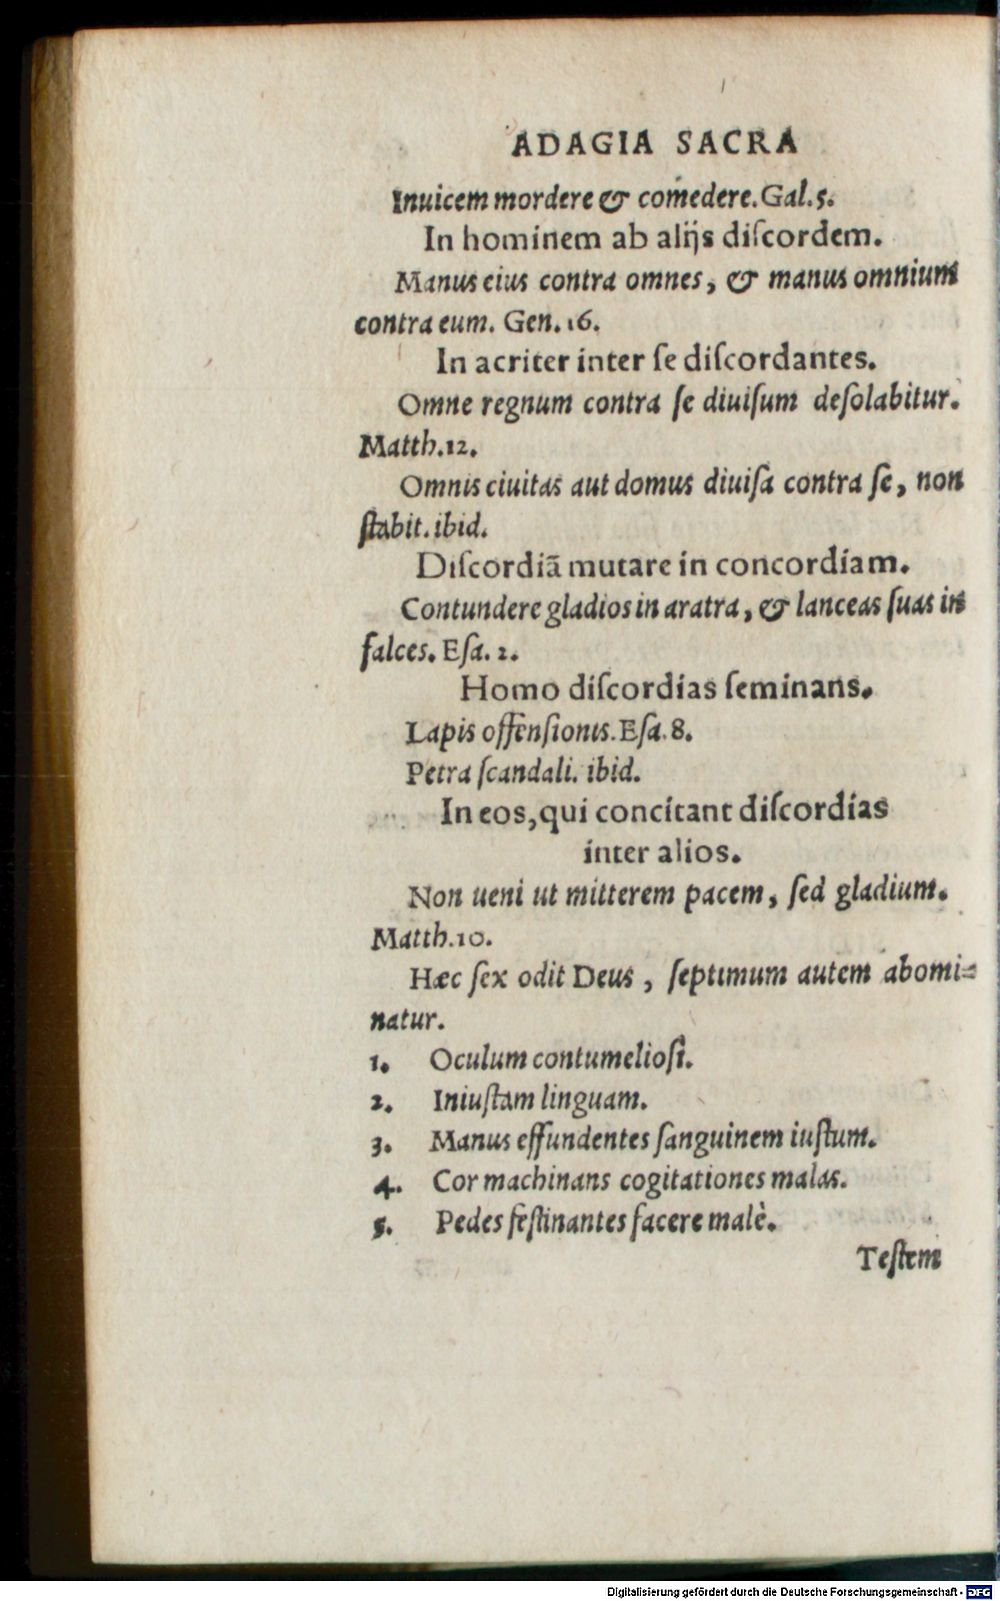 ADAGIA SACRA
Inuicem mordere & comedere. Gal. 5.
In hominem ab alijs diſcordem.
Manus eius contra omnes, & manus omnium
contra eum. Gen. 16.
In acriter inter ſe diſcordantes.
Omne regnum contra ſe diuiſum deſolabitur.
Matth. 12.
Omnis ciuitas aut domus diuiſa contra ſe, non
ſtabit. ibid.
Diſcordiã mutare in concordiam.
Contundere gladios in aratra, & lanceas ſuas in
falces. Eſa. 2.
Homo diſcordias ſeminans.
Lapis offenſionis. Eſa. 8.
Petra ſcandali. ibid.
In eos, qui concitant diſcordias
inter alios.
Non ueni ut mitterem pacem, ſed gladium.
Matth. 10.
Hæc ſex odit Deus, ſeptimum autem abomi-
natur.
1. Oculum contumelioſi.
2. Iniuſtam linguam.
3. Manus effundentes ſanguinem iuſtum.
4. Cor machinans cogitationes malas.
5. Pedes feſtinantes facere malè.
Teſtem
Digitalisierung gefördert durch die Deutsche Forschungsgemeinschaft - DFG